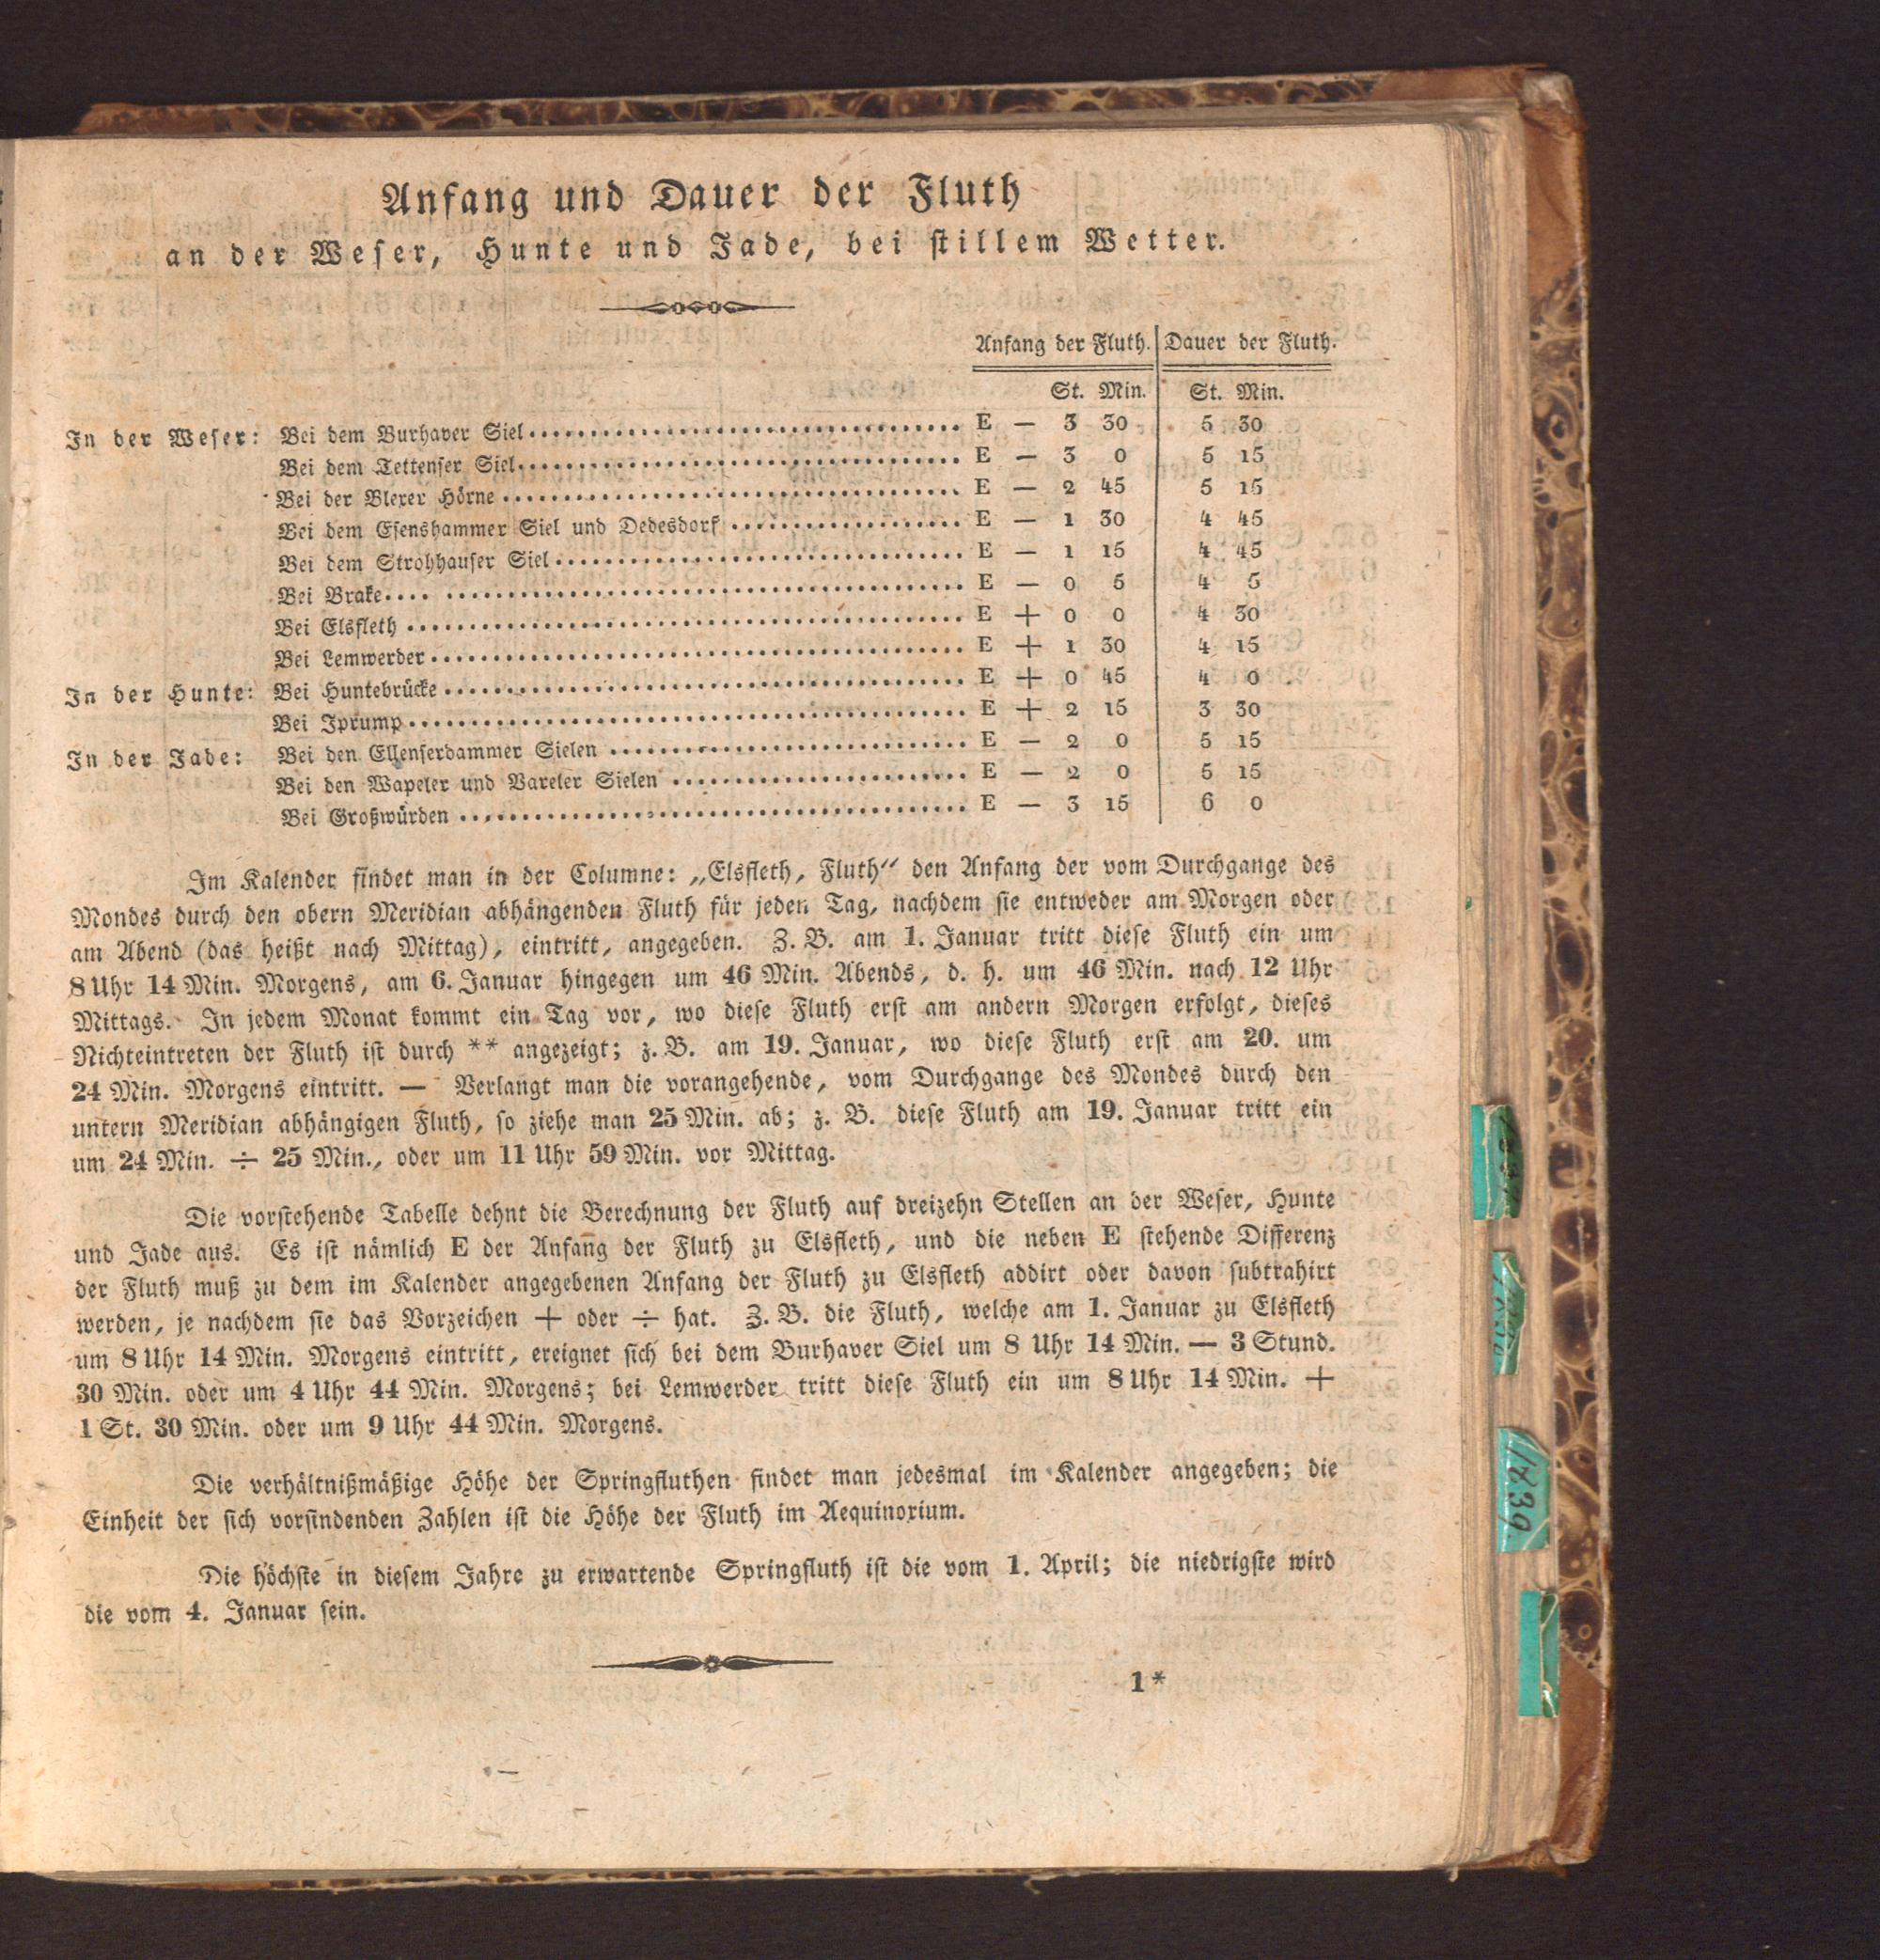 Anfang und Dauer der Fluth
an der Weser, Hunte und Jade, bei stillem Wetter.
Anfang der Fluth. Dauer der Fluth.
St. Min. St. Min.
In der Weser: Bei dem Burhaver Siel E — 3 30 5 30
Bei dem Tettenser Siel E — 3 0 5 15
Bei der Blexer Hörne E — 2 45 5 15
Bei dem Esenshammer Siel und Dedesdorf E — 1 30 4 45
Bei dem Strohhauser Siel E — 1 15 4 45
Bei Brake E — 0 5 4 5
Bei Elsfleth E + 0 0 4 30
Bei Lemwerder E + 1 30 4 15
In der Hunte: Bei Huntebrücke E + 0 45 4 0
Bei Iprump E + 2 15 3 30
In der Jade: Bei den Ellenserdammer Sielen E — 2 0 5 15
Bei den Wapeler und Vareler Sielen E — 2 0 5 15
Bei Großwürden E — 3 15 6 0
Im Kalender findet man in der Columne: „Elsfleth, Fluth“ den Anfang der vom Durchgange des
Mondes durch den obern Meridian abhängenden Fluth für jeden Tag, nachdem sie entweder am Morgen oder
am Abend (das heißt nach Mittag), eintritt, angegeben. Z. B. am 1. Januar tritt diese Fluth ein um
8 Uhr 14 Min. Morgens, am 6. Januar hingegen um 46 Min. Abends, d. h. um 46 Min. nach 12 Uhr
Mittags. In jedem Monat kommt ein Tag vor, wo diese Fluth erst am andern Morgen erfolgt, dieses
Nichteintreten der Fluth ist durch ** angezeigt; z. B. am 19. Januar, wo diese Fluth erst am 20. um
24 Min. Morgens eintritt. — Verlangt man die vorangehende, vom Durchgange des Mondes durch den
untern Meridian abhängigen Fluth, so ziehe man 25 Min. ab; z. B. diese Fluth am 19. Januar tritt ein
um 24 Min. ÷ 25 Min., oder um 11 Uhr 59 Min. vor Mittag.
Die vorstehende Tabelle dehnt die Berechnung der Fluth auf dreizehn Stellen an der Weser, Hunte
und Jade aus. Es ist nämlich E der Anfang der Fluth zu Elsfleth, und die neben E stehende Differenz
der Fluth muß zu dem im Kalender angegebenen Anfang der Fluth zu Elsfleth addirt oder davon subtrahirt
werden, je nachdem sie das Vorzeichen + oder ÷ hat. Z. B. die Fluth, welche am 1. Januar zu Elsfleth
um 8 Uhr 14 Min. Morgens eintritt, ereignet sich bei dem Burhaver Siel um 8 Uhr 14 Min. — 3 Stund.
30 Min. oder um 4 Uhr 44 Min. Morgens; bei Lemwerder tritt diese Fluth ein um 8 Uhr 14 Min. +
1 St. 30 Min. oder um 9 Uhr 44 Min. Morgens.
Die verhältnißmäßige Höhe der Springfluthen findet man jedesmal im Kalender angegeben; die
Einheit der sich vorfindenden Zahlen ist die Höhe der Fluth im Aequinoxium.
Die höchste in diesem Jahre zu erwartende Springfluth ist die vom 1. April; die niedrigste wird
die vom 4. Januar sein.
1*
1839